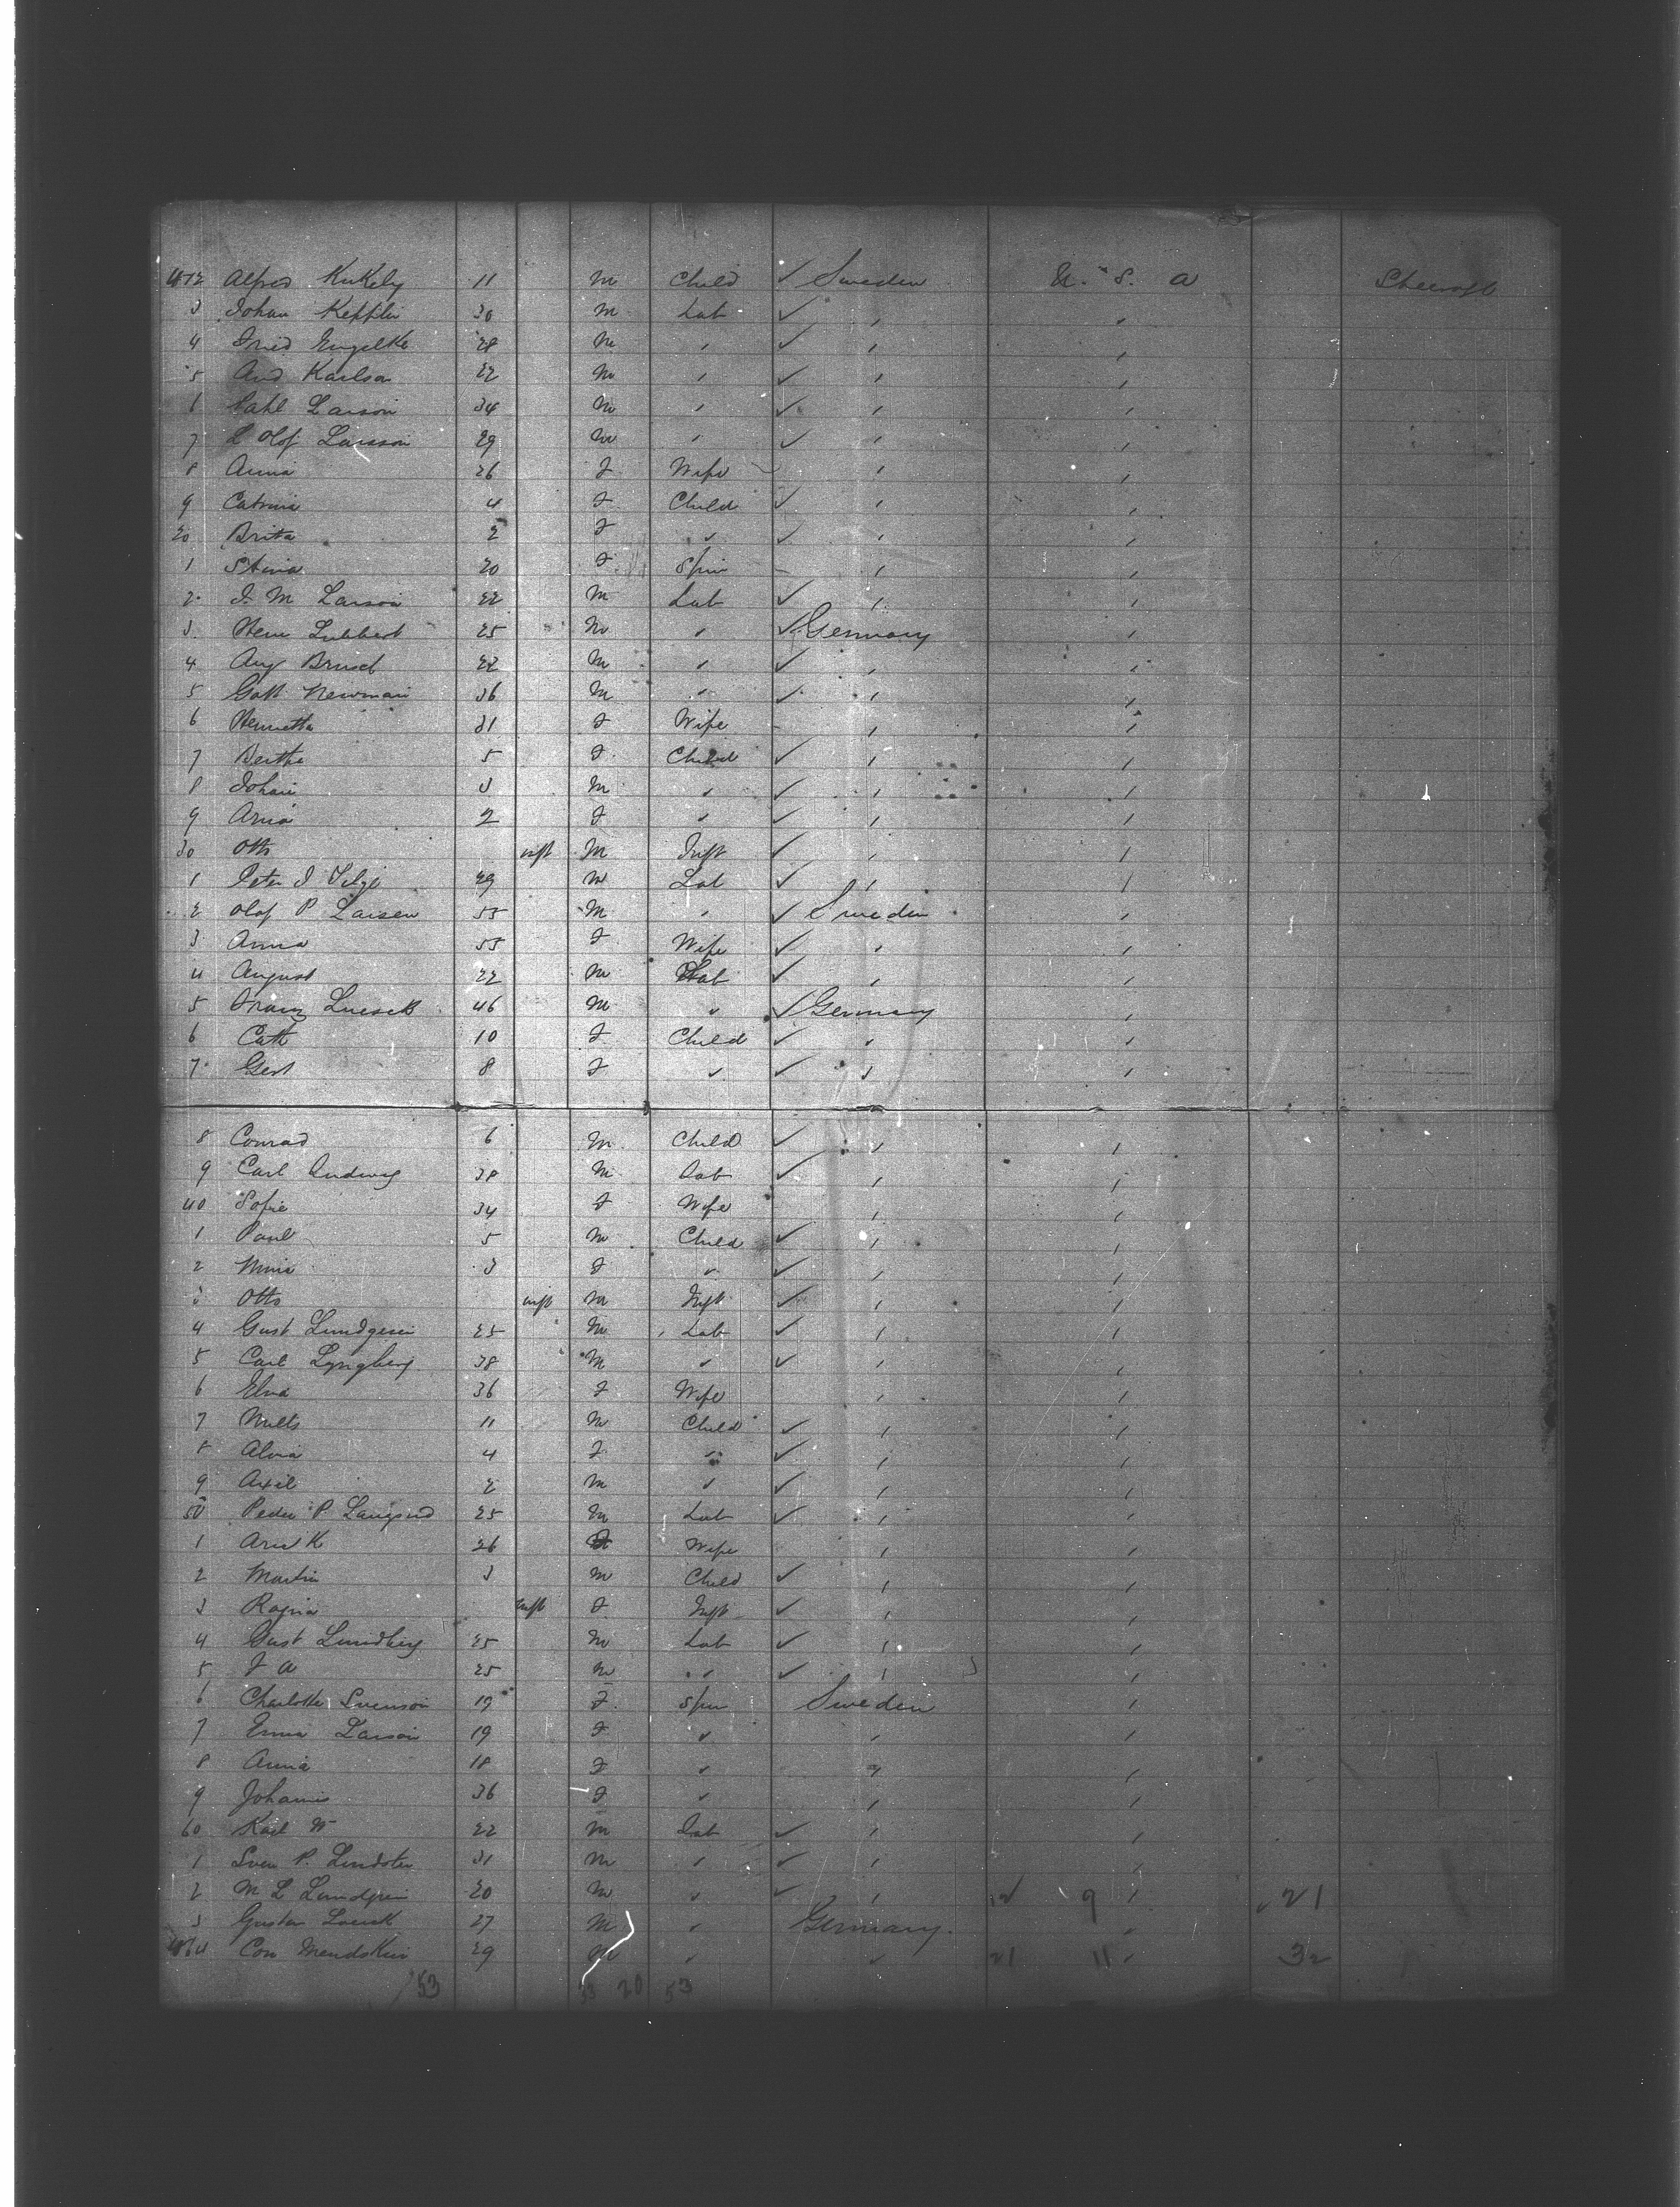 412 Alfred Kukely 11 M Child ✓ Sweden U. S. A Steerage
3 Johan Keppler 30 M Lab ✓ " "
4 Fried Engelke 28 M " ✓ " "
5 And Karlson 22 M " ✓ " "
6 Larson 34 M " ✓ " "
7 L Olof Larsson 29 M " ✓ " "
8 Anna 26 F Wife " "
9 Catrina 4 F Child ✓ " "
20 Brita 2 F " ✓ " "
1 Stina 20 F Spin " "
2 J. M Larson 22 M Lab ✓ " "
3 Henr Lubbert 25 M " ✓ Germany "
4 Aug Brusch 22 M " ✓ " "
5 Gott Newman 36 M " ✓ " "
6 Henrietta 31 F Wife " "
7 Bertha 5 F Child ✓ " "
8 Johan 3 M " ✓ " "
9 Anna 2 F " ✓ " "
30 Otto inft M Inft ✓ " "
1 Peter J 29 M Lab ✓ " "
2 Olof P Larsen 55 M " ✓ Sweden "
3 Anna 55 F Wife ✓ " "
4 August 22 M Lab ✓ " "
5 Franz 46 M " ✓ Germany "
6 Cath 10 F Child ✓ " "
7 Gert 8 F " ✓ " "
8 Conrad 6 M Child ✓ " "
9 Carl Ludwig 38 M Lab ✓ " "
40 Sofie 34 F Wife " "
1 Paul 5 M Child ✓ " "
2 Mina 3 F " ✓ " "
3 Otto inft M Inft ✓ " "
4 Gust Lundgren 25 M Lab ✓ " "
5 Carl Lyngberg 38 M " ✓ " "
6 Elna 36 F Wife " "
7 Nills 11 M Child ✓ " "
8 Alvia 4 F " ✓ " "
9 Axel 2 M " ✓ " "
50 Peder P 25 M Lab ✓ " "
1 K 26 F Wife " "
2 Martin 3 M Child ✓ " "
3 Ragna inft F Inft ✓ " "
4 Gust Lundberg 25 M Lab ✓ " "
5 F A 25 M " ✓ " "
6 Charlotta Svenson 19 F Spin Sweden "
7 Emma Larson 19 F " " "
8 Anna 18 F " " "
9 Johanis 36 F " " "
60 Karl W 22 M Lab ✓ " "
1 Sven P. 31 M " ✓ " "
2 M L Lundgren 20 M " ✓ " 12 9 " 21
3 Gustav 27 M " Germany. "
464 Con 29 M " " 21 11 " 32
53 33 20 53